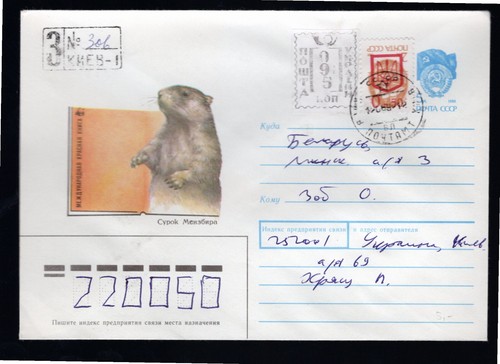 З № 306
КИЕВ-1
ПОШТА
095
КОП
ПОЧТА СССР
ПОЧТА СССР
ПОЧТАМТ
МЕЖДУНАРОДНАЯ КРАСНАЯ КНИГА
Сурок Мензбира
Куда
Беларусь
Минск а/я 3
Кому
Зоб О.
Индекс предприятия связи и адрес отправителя
252001 Украина, Киев
а/я 69
Хрящ П.
220050
Пишите индекс предприятия связи места назначения
5,-